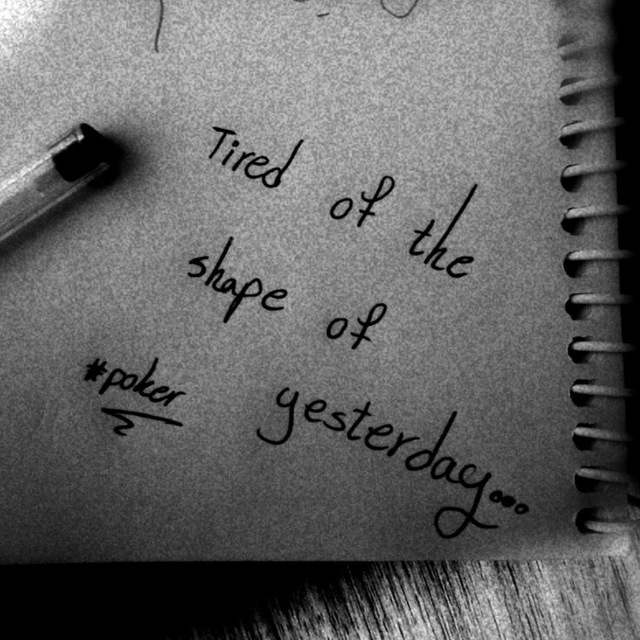 Tired of the
shape of
yesterday...
#poker